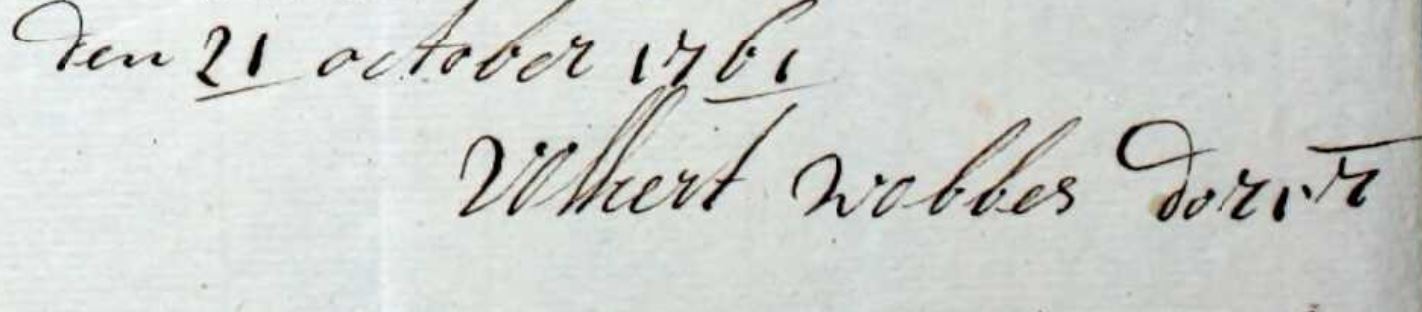 den 21 october 1761
Volkert wobbes